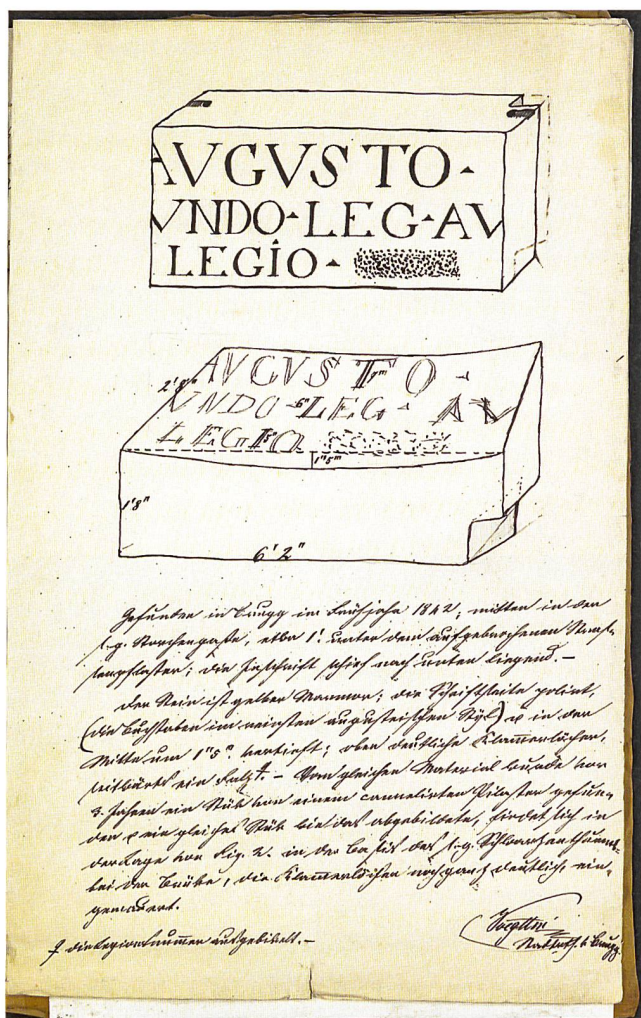 AVGVSTO·
VNDO·LEG·AV
LEGIO·
AVGVSTO·
VNDO·LEG·AV
LEGIO
2'8"
6"
1"5'''
1'8"
6'2"
Gefunden in Brugg im Frühjahr 1842, mitten in der
s.g. Storchengasse, etwa 1'. unter dem aufgebrochenen Stras-
senpflaster; die Inschrift schief nach unten liegend. –
Der Stein ist gelber Marmor; die Schriftseite polirt,
(die Buchstaben im reinsten augusteischen Styl) & in der
Mitte um 1"5'''. vertieft; oben deutliche Klammerlöcher,
seitwärts ein Falz. – Vom gleichen Material wurde vor
3. Jahren ein Stük von einem cannelirten Pilaster gefun-
den & ein gleiches Stük wie das abgebildete, findet sich in
der Lage von Fig. 2. in der Basis des s.g. Schwarzenthurms
bei der Brüke, die Klammerlöcher noch ganz deutlich, ein-
gemauert.
die Legionsnummer ausgebikelt. –
Brugg.